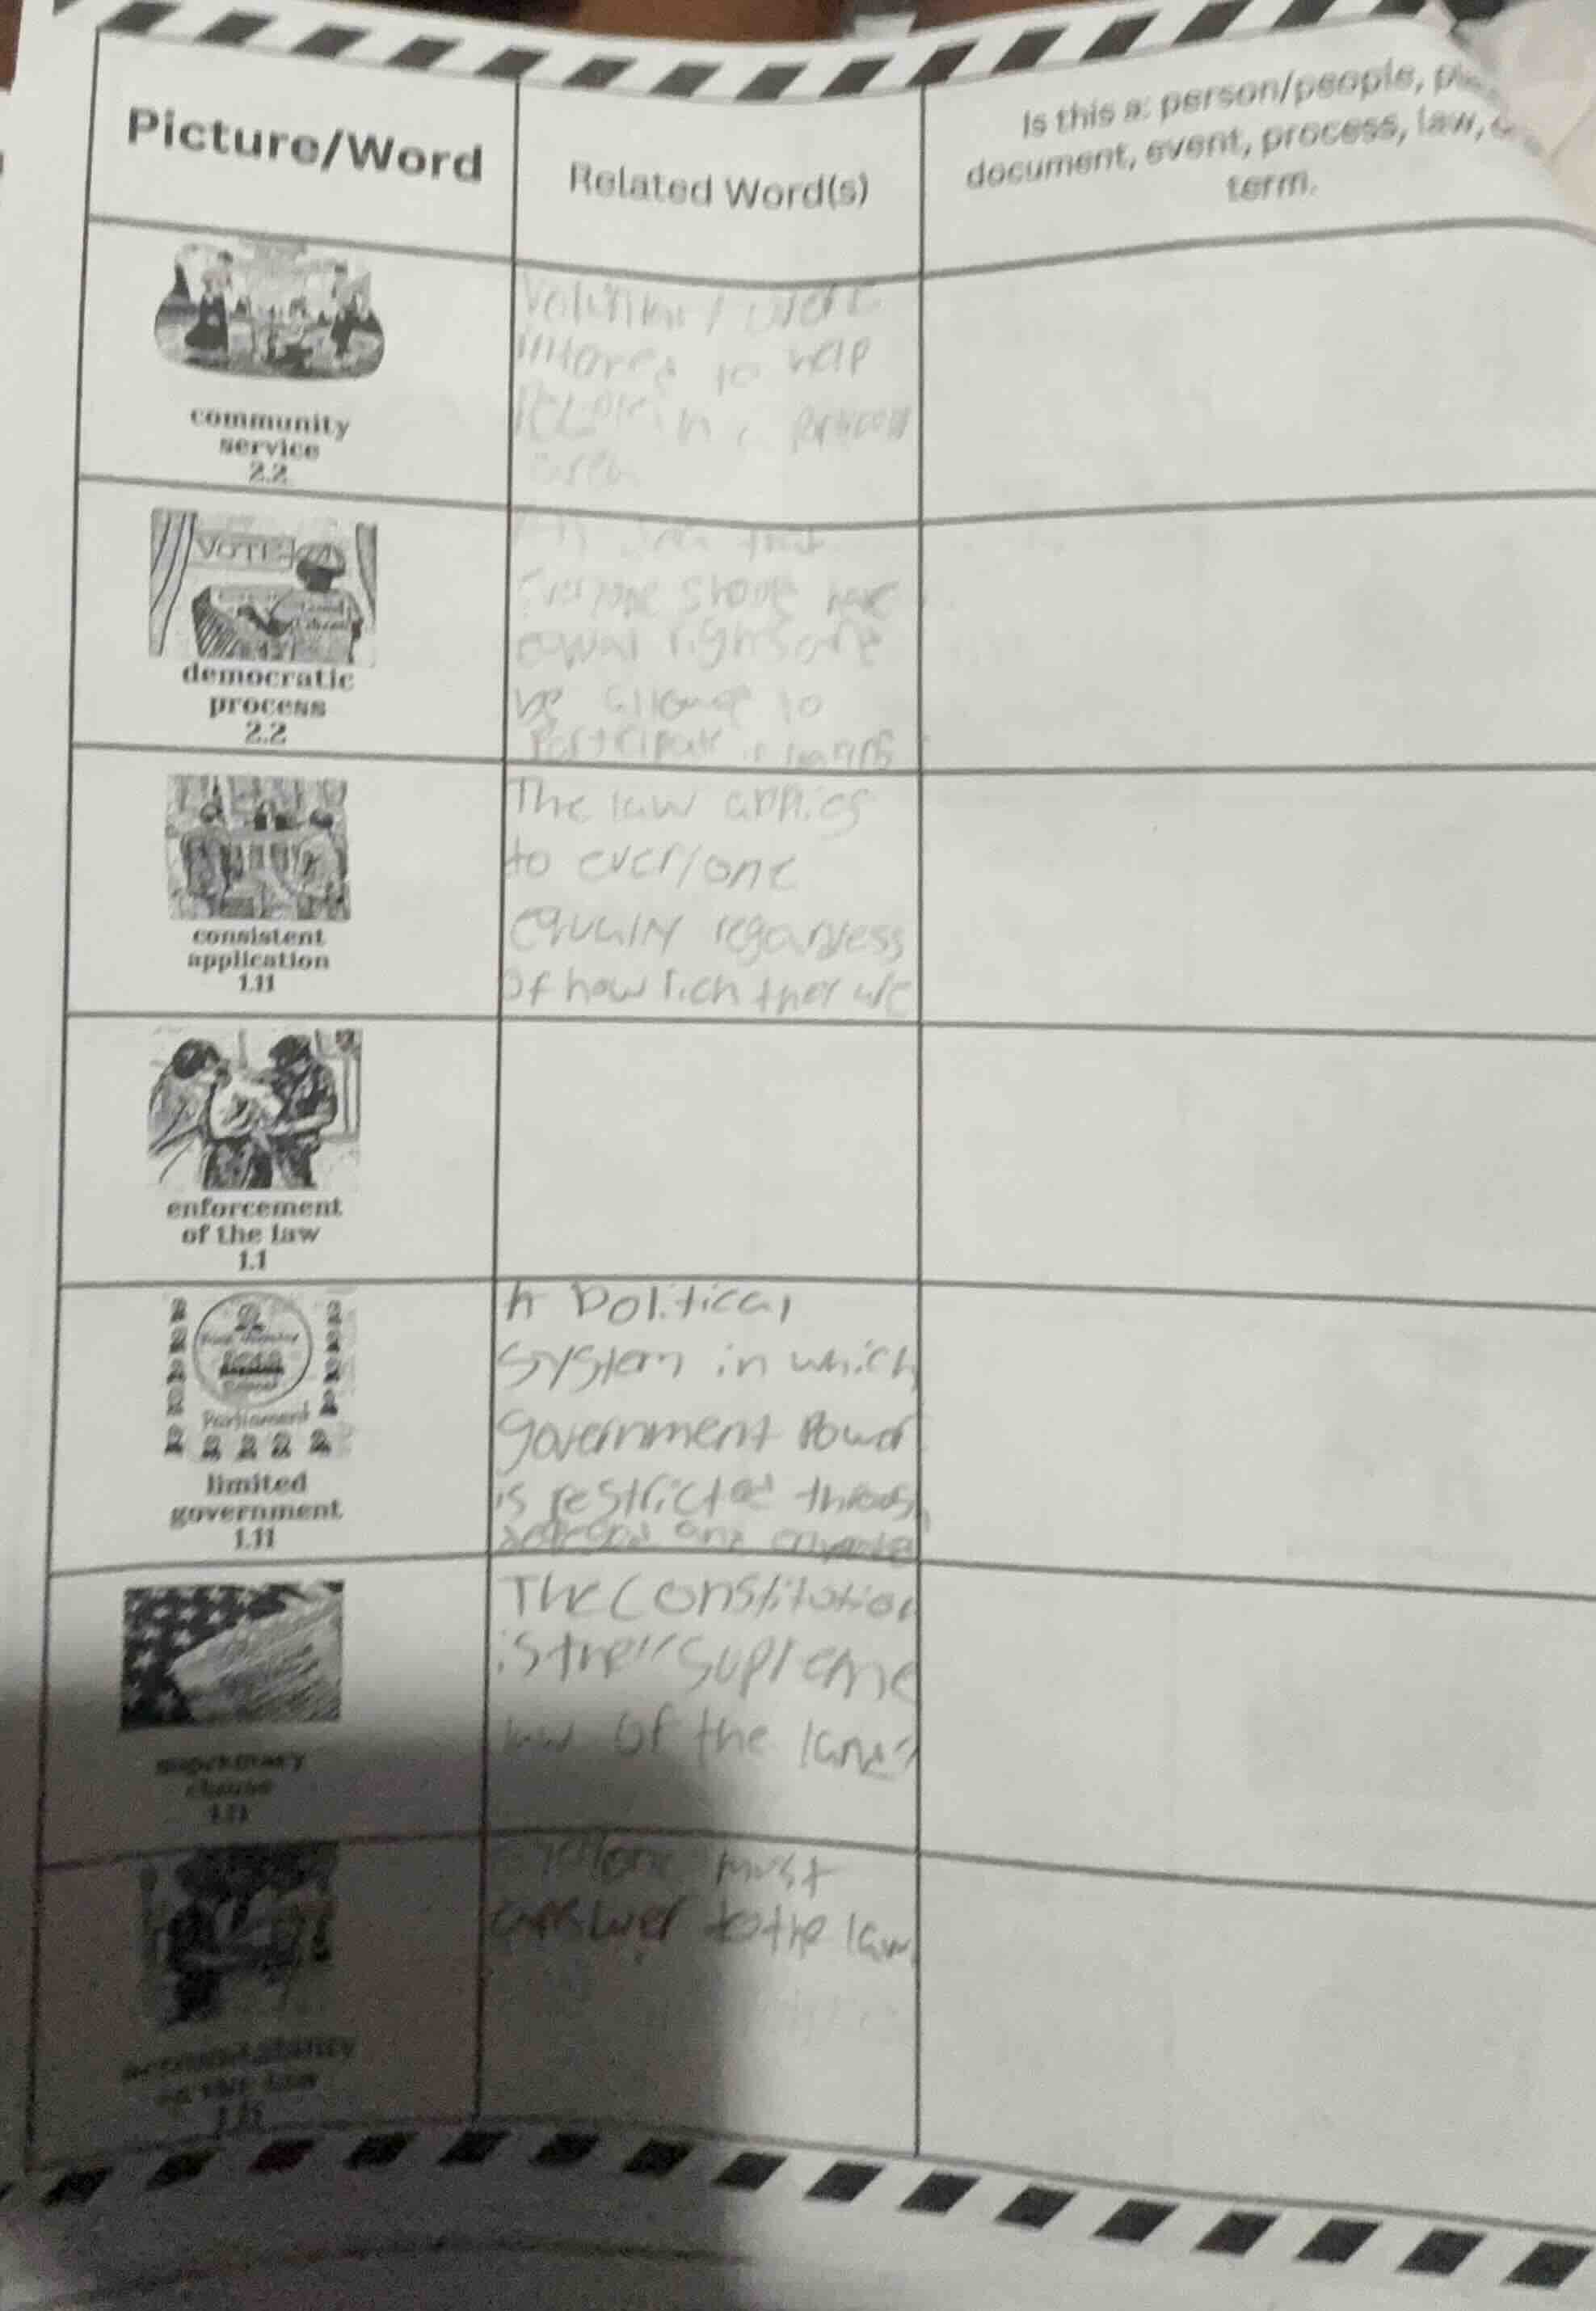 Picture/Word
Related Word(s)
Is this a: person/people,
document, event, process, law,
term.
community
service
2.2
to help
in
area
VOTE
democratic
process
2.2
that
everyone should have
equal rights and
be to
participate in
consistent
application
1.11
The law applies
to everyone
equally regardless
of how rich they are
enforcement
of the law
1.1
Parliament
limited
government
1.11
A Political
System in which
government Power
is restricted through
and
supremacy
clause
1.11
The Constitution
is the "Supreme
law of the land"
accountability
to the law
1.11
everyone must
answer to the law